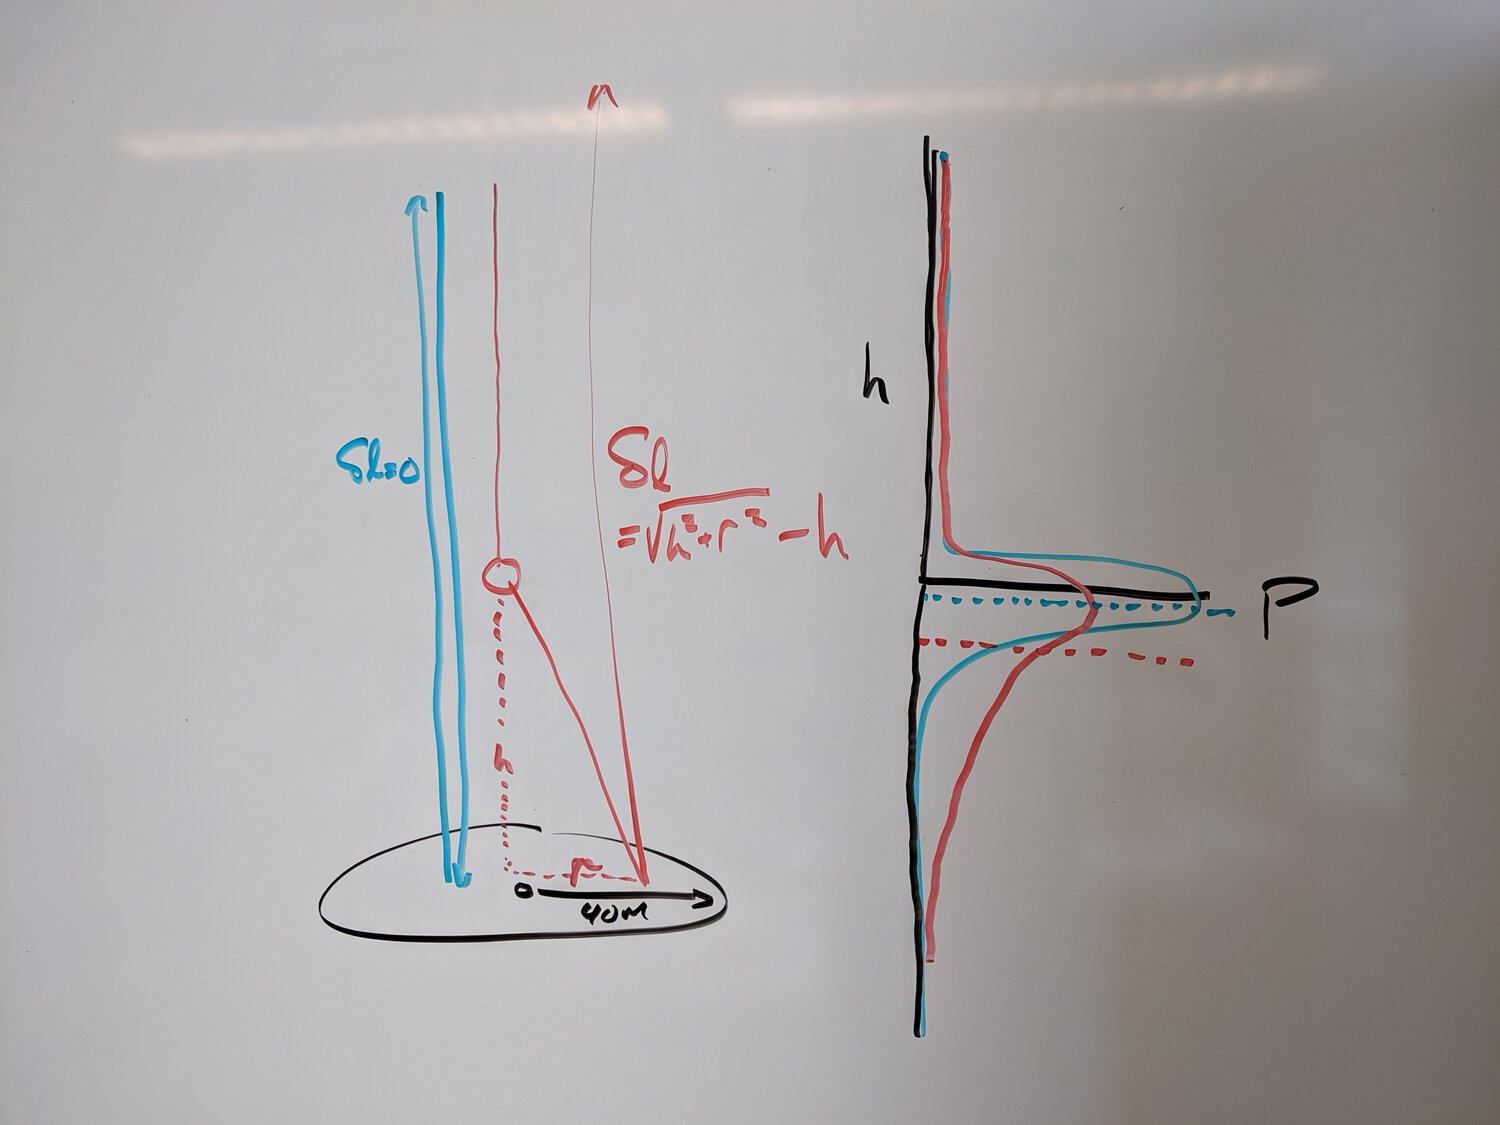 δl=0
δl
=√h²+r² - h
h
r
40m
h
P